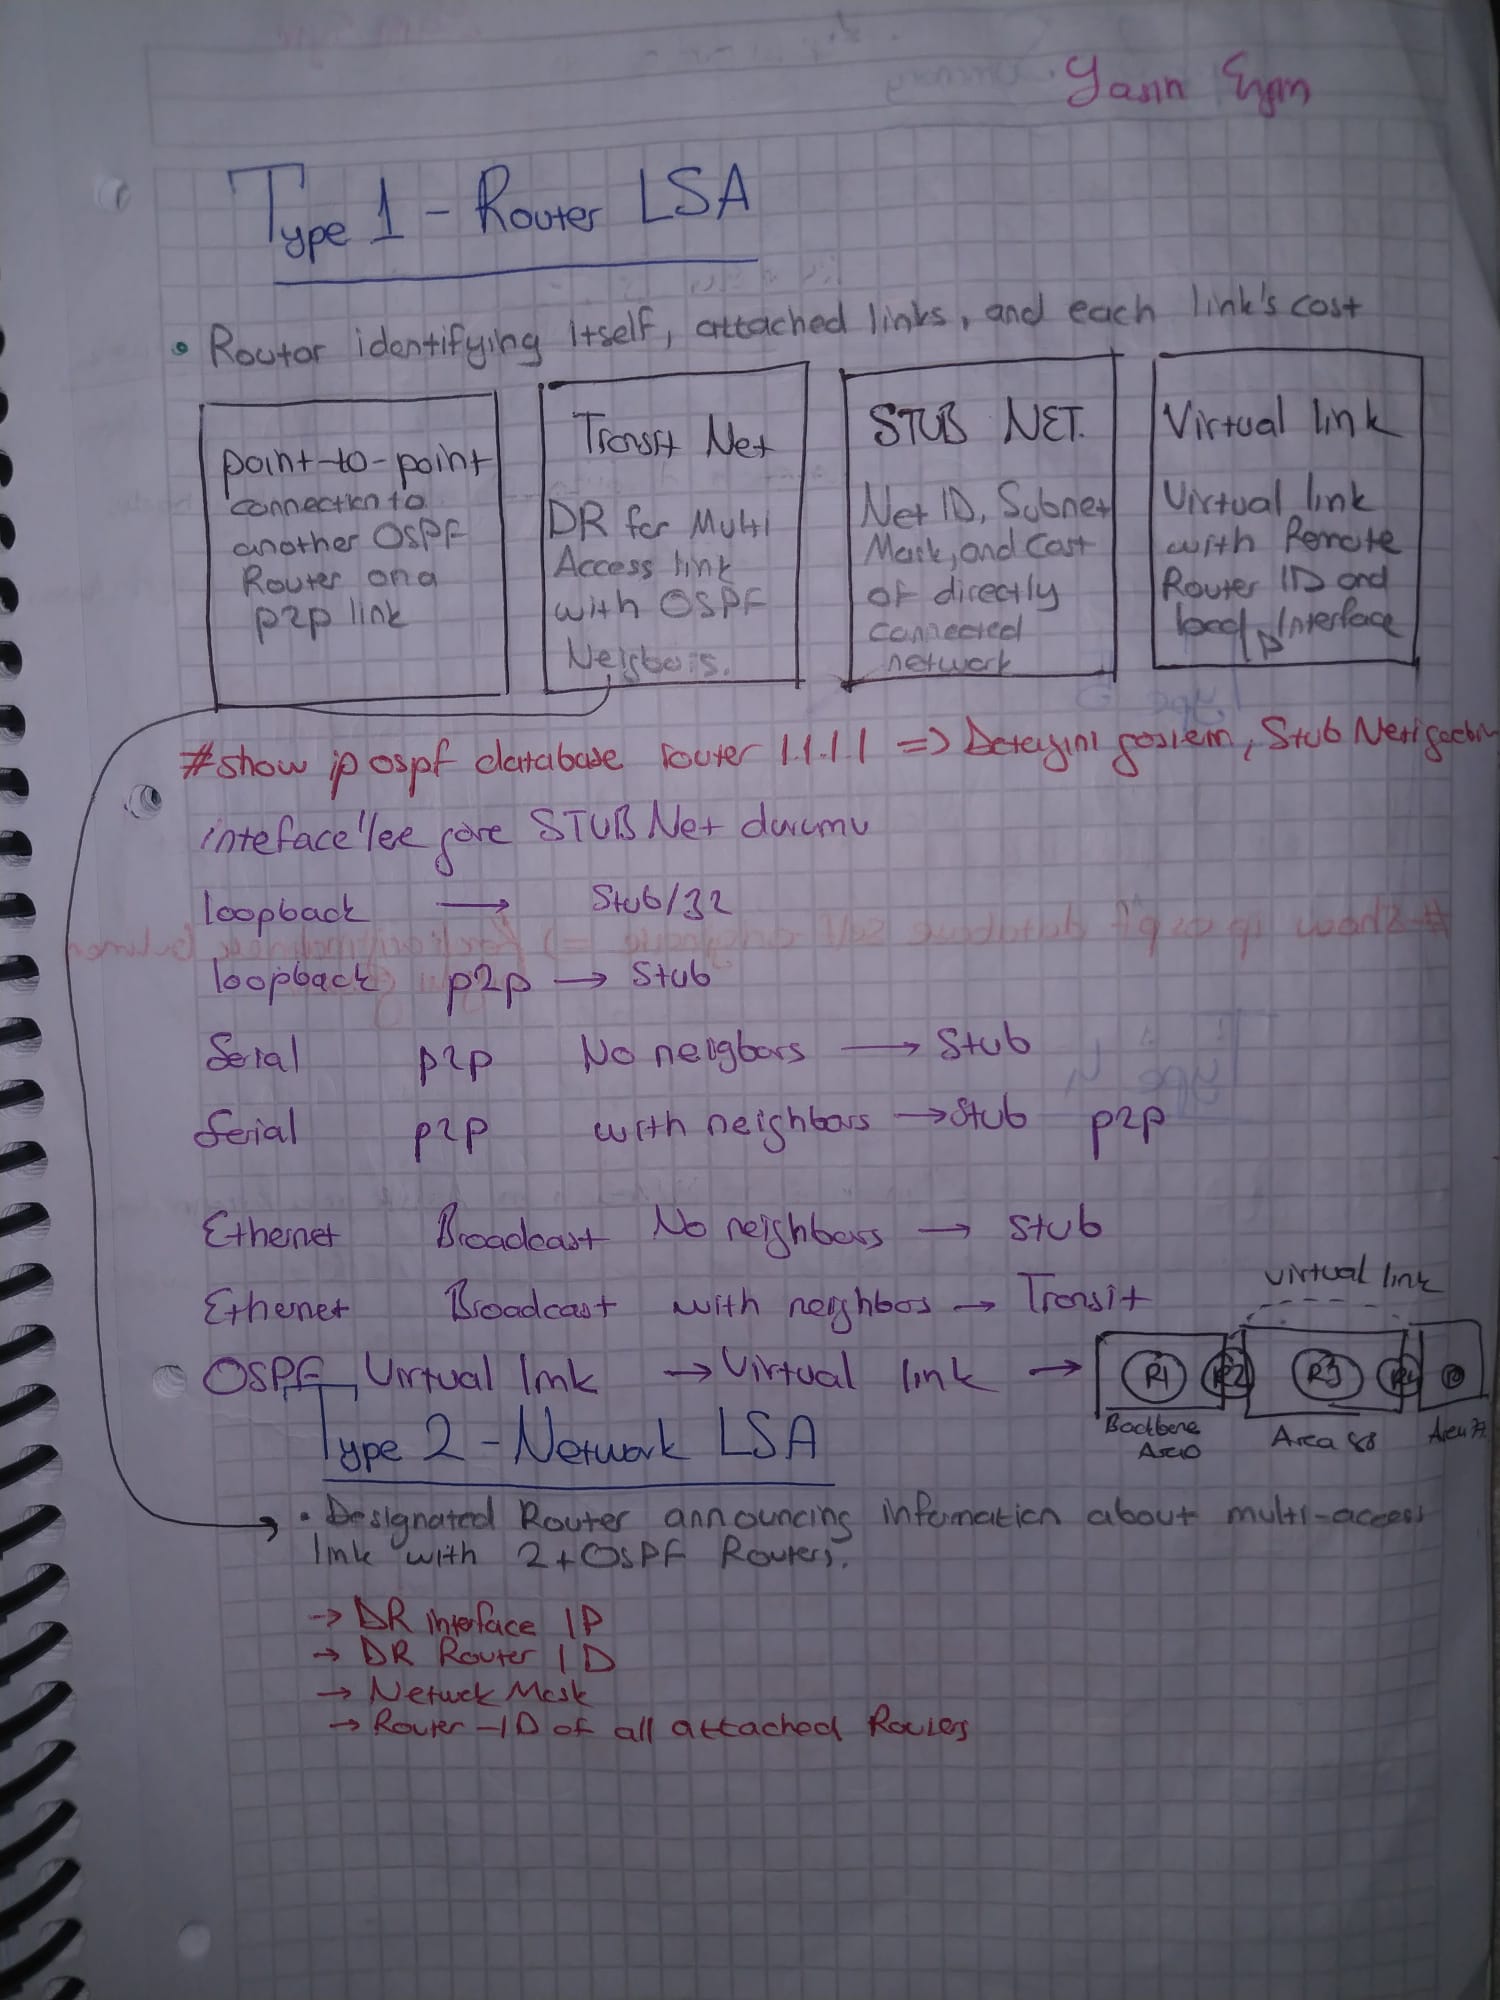 Yasin
Type 1 - Router LSA
• Routor identifying Itself, attached links, and each link's cost
point-to-point
connection to
another OSPF
Router on a
p2p link
Transit Net
DR for Multi
Access link
with OSPF
Neigbors.
STUB NET.
Net ID, Subnet
Mask, and Cost
of directly
connected
network
Virtual link
Virtual link
with Remote
Router ID and
local Interface
IP
#show ip ospf database router 1.1.1.1 => Detayını gösterir, Stub Net'i
inteface'lere göre STUB Net durumu
loopback → Stub/32
loopback p2p → Stub
Serial p2p No neigbors → Stub
Serial p2p with neighbors → Stub p2p
Ethernet Broadcast No neighbors → Stub
Ethernet Broadcast with neighbos → Transit
virtual link
OSPF Virtual link → Virtual link →
R1 R2 R3 R4
Backbone
Area 0
Area 88
Area
Type 2 - Network LSA
• Designated Router announcing infomation about multi-access
link with 2+ OSPF Routers.
→ DR interface IP
→ DR Router ID
→ Netwok Mask
→ Router-ID of all attached Routers